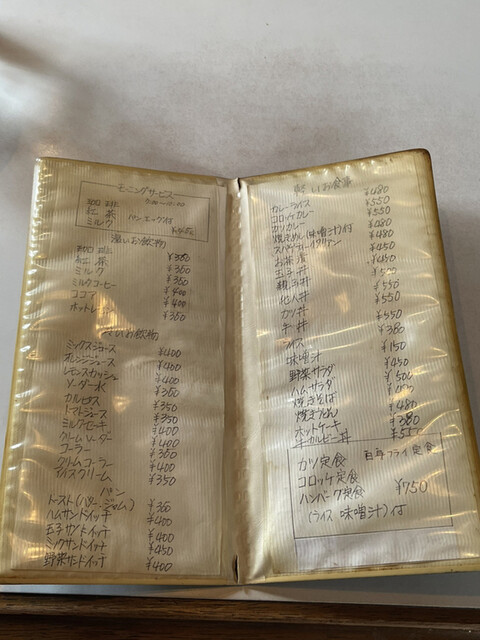 モーニングサービス
珈琲
紅茶 パン、エッグ付
ミルク
温いお飲物
珈琲 ¥350
紅茶 ¥350
ミルク ¥350
ミルクコーヒー ¥400
ココア ¥400
¥350
お飲物
ミックスジュース ¥400
オレンジジュース ¥400
レモンスカッシュ ¥400
ソーダー水 ¥350
カルピス ¥350
トマトジュース ¥350
ミルクセーキ ¥400
クリームソーダー ¥400
コーラー ¥350
クリームコーラー ¥400
アイスクリーム ¥350
パン
トースト(バター・ジャム) ¥350
ハムサンドイッチ ¥400
玉子サンドイッチ ¥400
ミックサンドイッチ ¥450
野菜サンドイッチ ¥400
いお食事
カレーライス ¥480
コロッケカレー ¥550
カツカレー ¥550
焼きめし(味噌汁)付 ¥480
スパゲティー ¥480
お茶漬 ¥450
玉子丼
親子丼
他人丼 ¥550
カツ丼 ¥550
牛丼 ¥550
ライス
味噌汁 ¥150
野菜サラダ ¥450
ハムサラダ
焼きそば
焼きうどん ¥480
ホットケーキ ¥380
牛カルビー丼
カツ定食 白身フライ定食
コロッケ定食
ハンバーグ定食 ¥750
(ライス 味噌汁)付